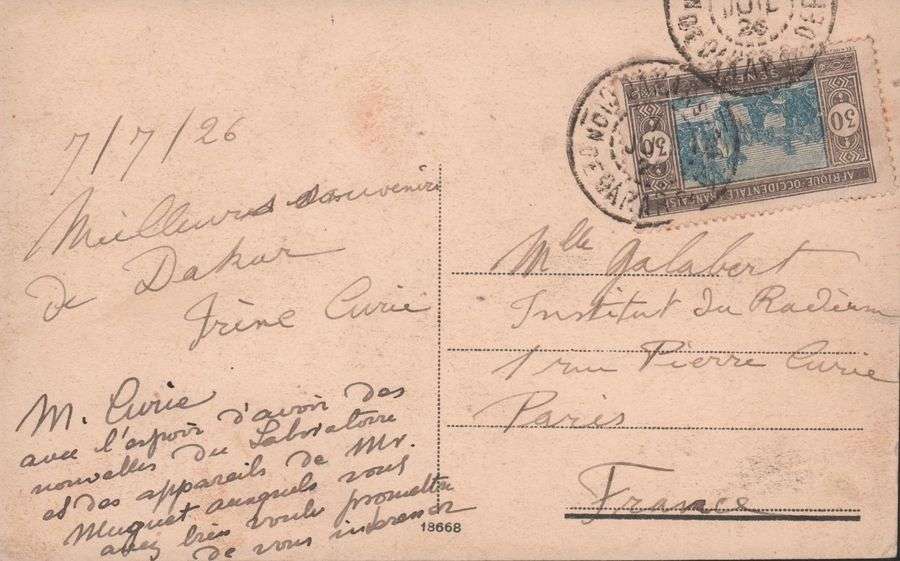 7/7/26
Meilleurs souvenirs
de Dakar
Irène Curie
M. Curie
avec l'espoir d'avoir des
nouvelles du Laboratoire
et des appareils de Mr.
Muguet auxquels vous
avez bien voulu promettre
de vous intéresser
Mlle Galabert
Institut du Radium
1 rue Pierre Curie
Paris
France
18668
30
30
AFRIQUE OCCIDENTALE FRANÇAISE
SÉNÉGAL
DAKAR
26